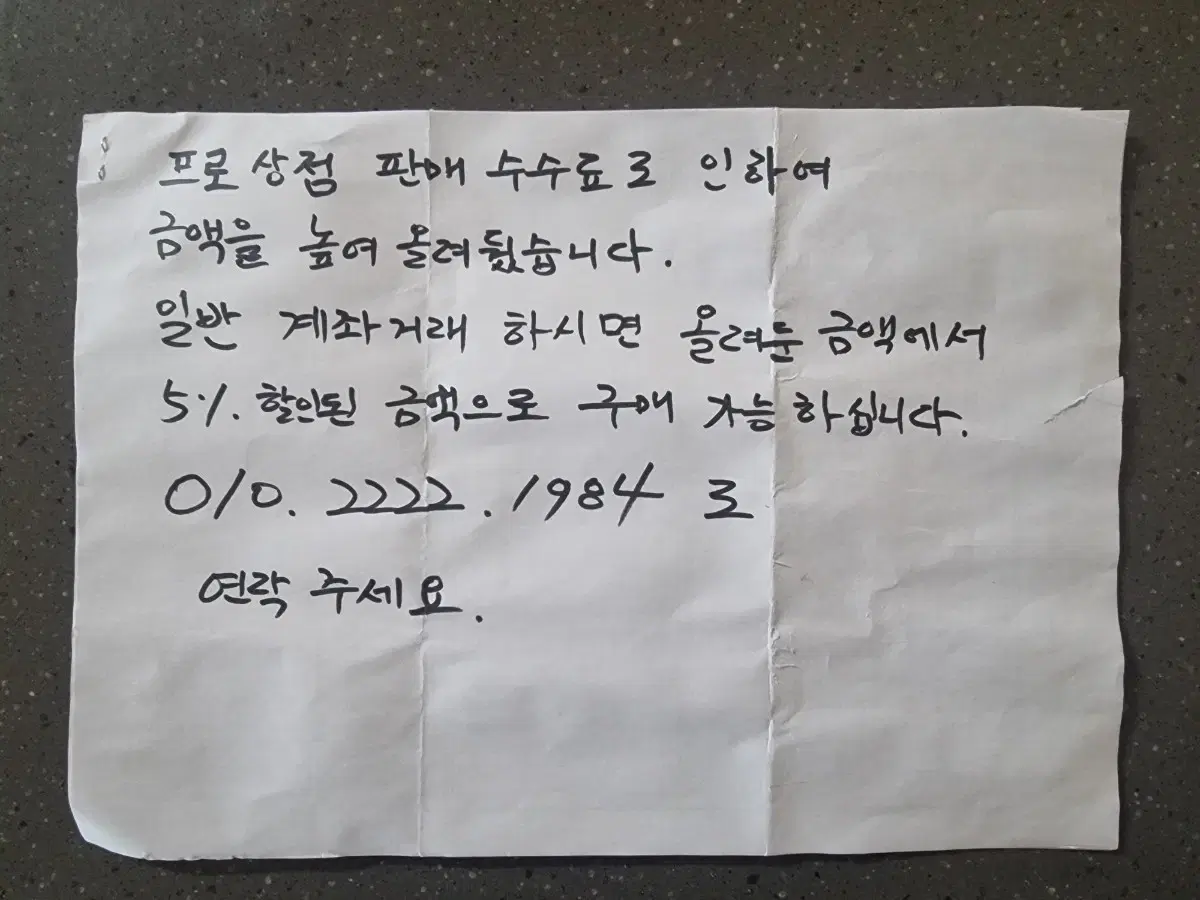 프로상점 판매 수수료로 인하여
금액을 높여 올려뒀습니다.
일반 계좌거래 하시면 올려둔 금액에서
5%. 할인된 금액으로 구매 가능하십니다.
010. 2222. 1984 로
연락 주세요.